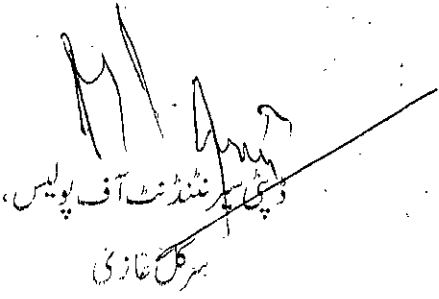 ڈپٹی سپرنٹنڈنٹ آف پولیس،
سرکل غازی